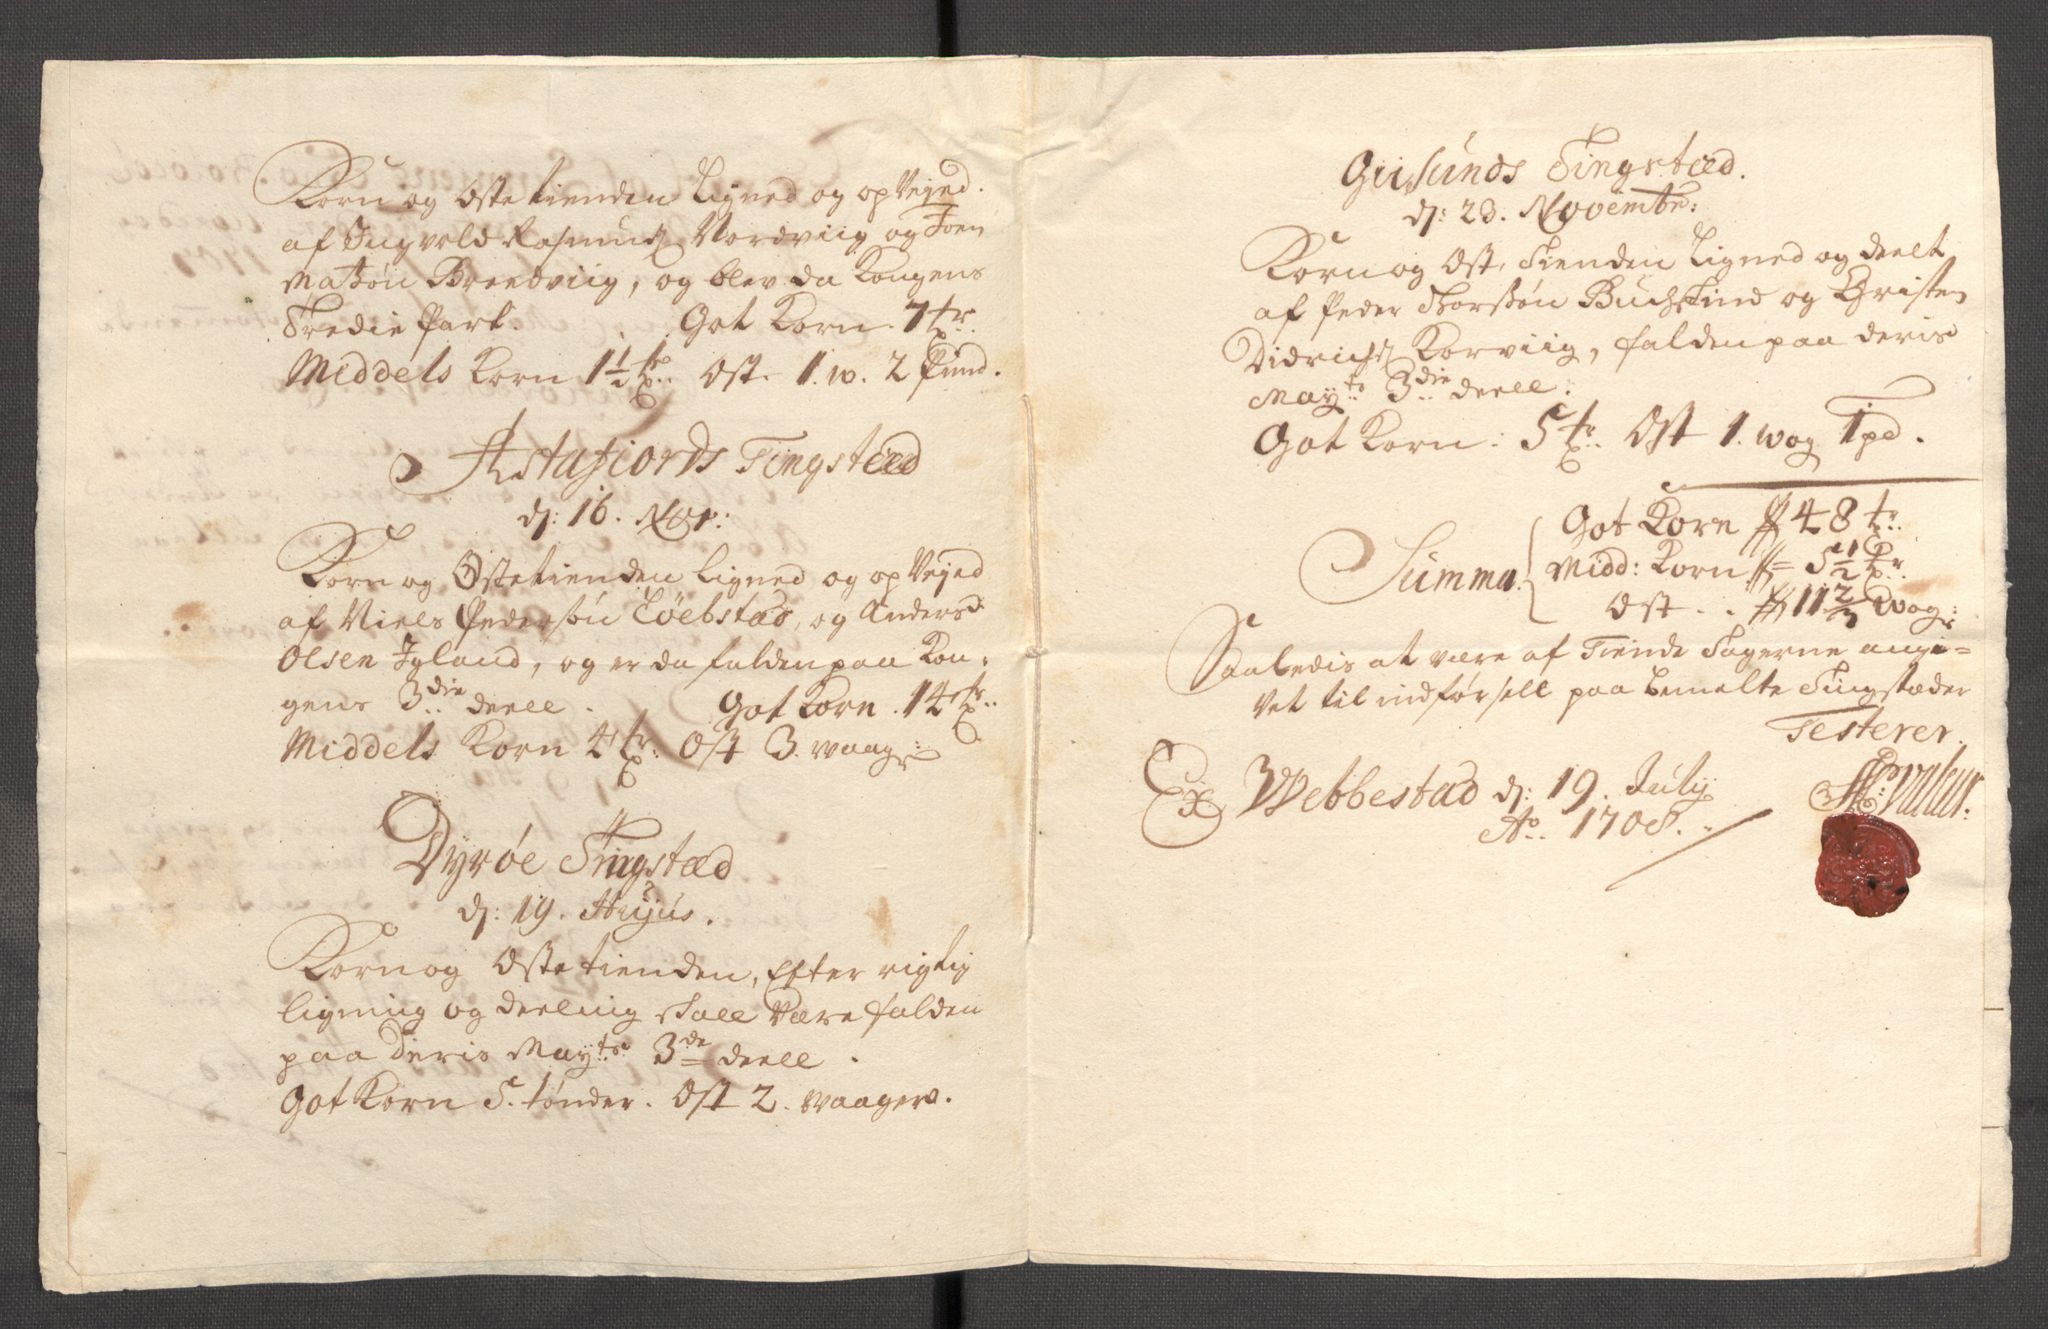 Korn og Ostetienden Ligned og op Vejed.
af Ingvold Rasmuds: Nordviig og Joen
Matzøn Breedviig, og blev da Kongens
Tredie Part. Got Korn. 7 tr:
Middels Korn 1½ tr: Ost. 1. w. 2 Pund.
Astafiords Tingsteed
d: 16. Nov:
Korn og Ostetienden Ligned og op Vejed
af Niels Pedersøn Løebstad, og Anders
Olsen Igland, og er da falden paa Kon-
gens 3die deell. Got Korn. 14 tr:
Middels Korn 4 tr: Ost 3. waag:
Dyrøe Tingstæd
d: 19. Hujus.
Korn og Ostetienden, Efter rigtig
ligning og deeling skall være falden
paa deris Mayts 3de deell.
Got Korn 5. tønder. Ost 2. Waager.
Giisunds Tingsteed.
d: 23. Novembr:
Korn og Ost, Tienden Ligned og deelt
af Peder Thorssøn Buchskind og Christen
Didrichs: Korviig, falden paa deris
Mayts 3die deell:
Got Korn: 5 tr: Ost 1. wog 1 pd.
Got Korn 48 tr:
Summa. Midd: Korn 5½ tr:
Ost.. 11⅔ wog:
Saaledis at være af Tiende Tagerne angi-
vet til indførsell paa bemelte Tingstæder
Testerer.
Ex Webbestad d: 19. July
Ao. 1708.